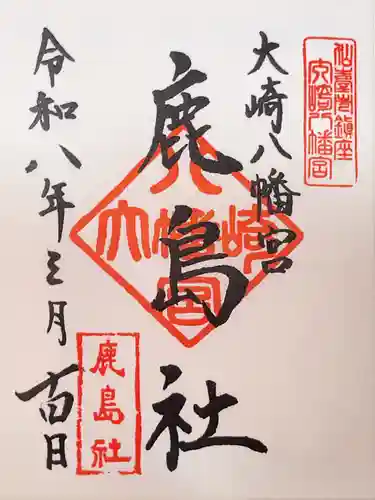 仙臺市鎮座
大崎八幡宮
大崎八幡宮
鹿島社
大崎八幡宮
令和八年三月日
鹿島社